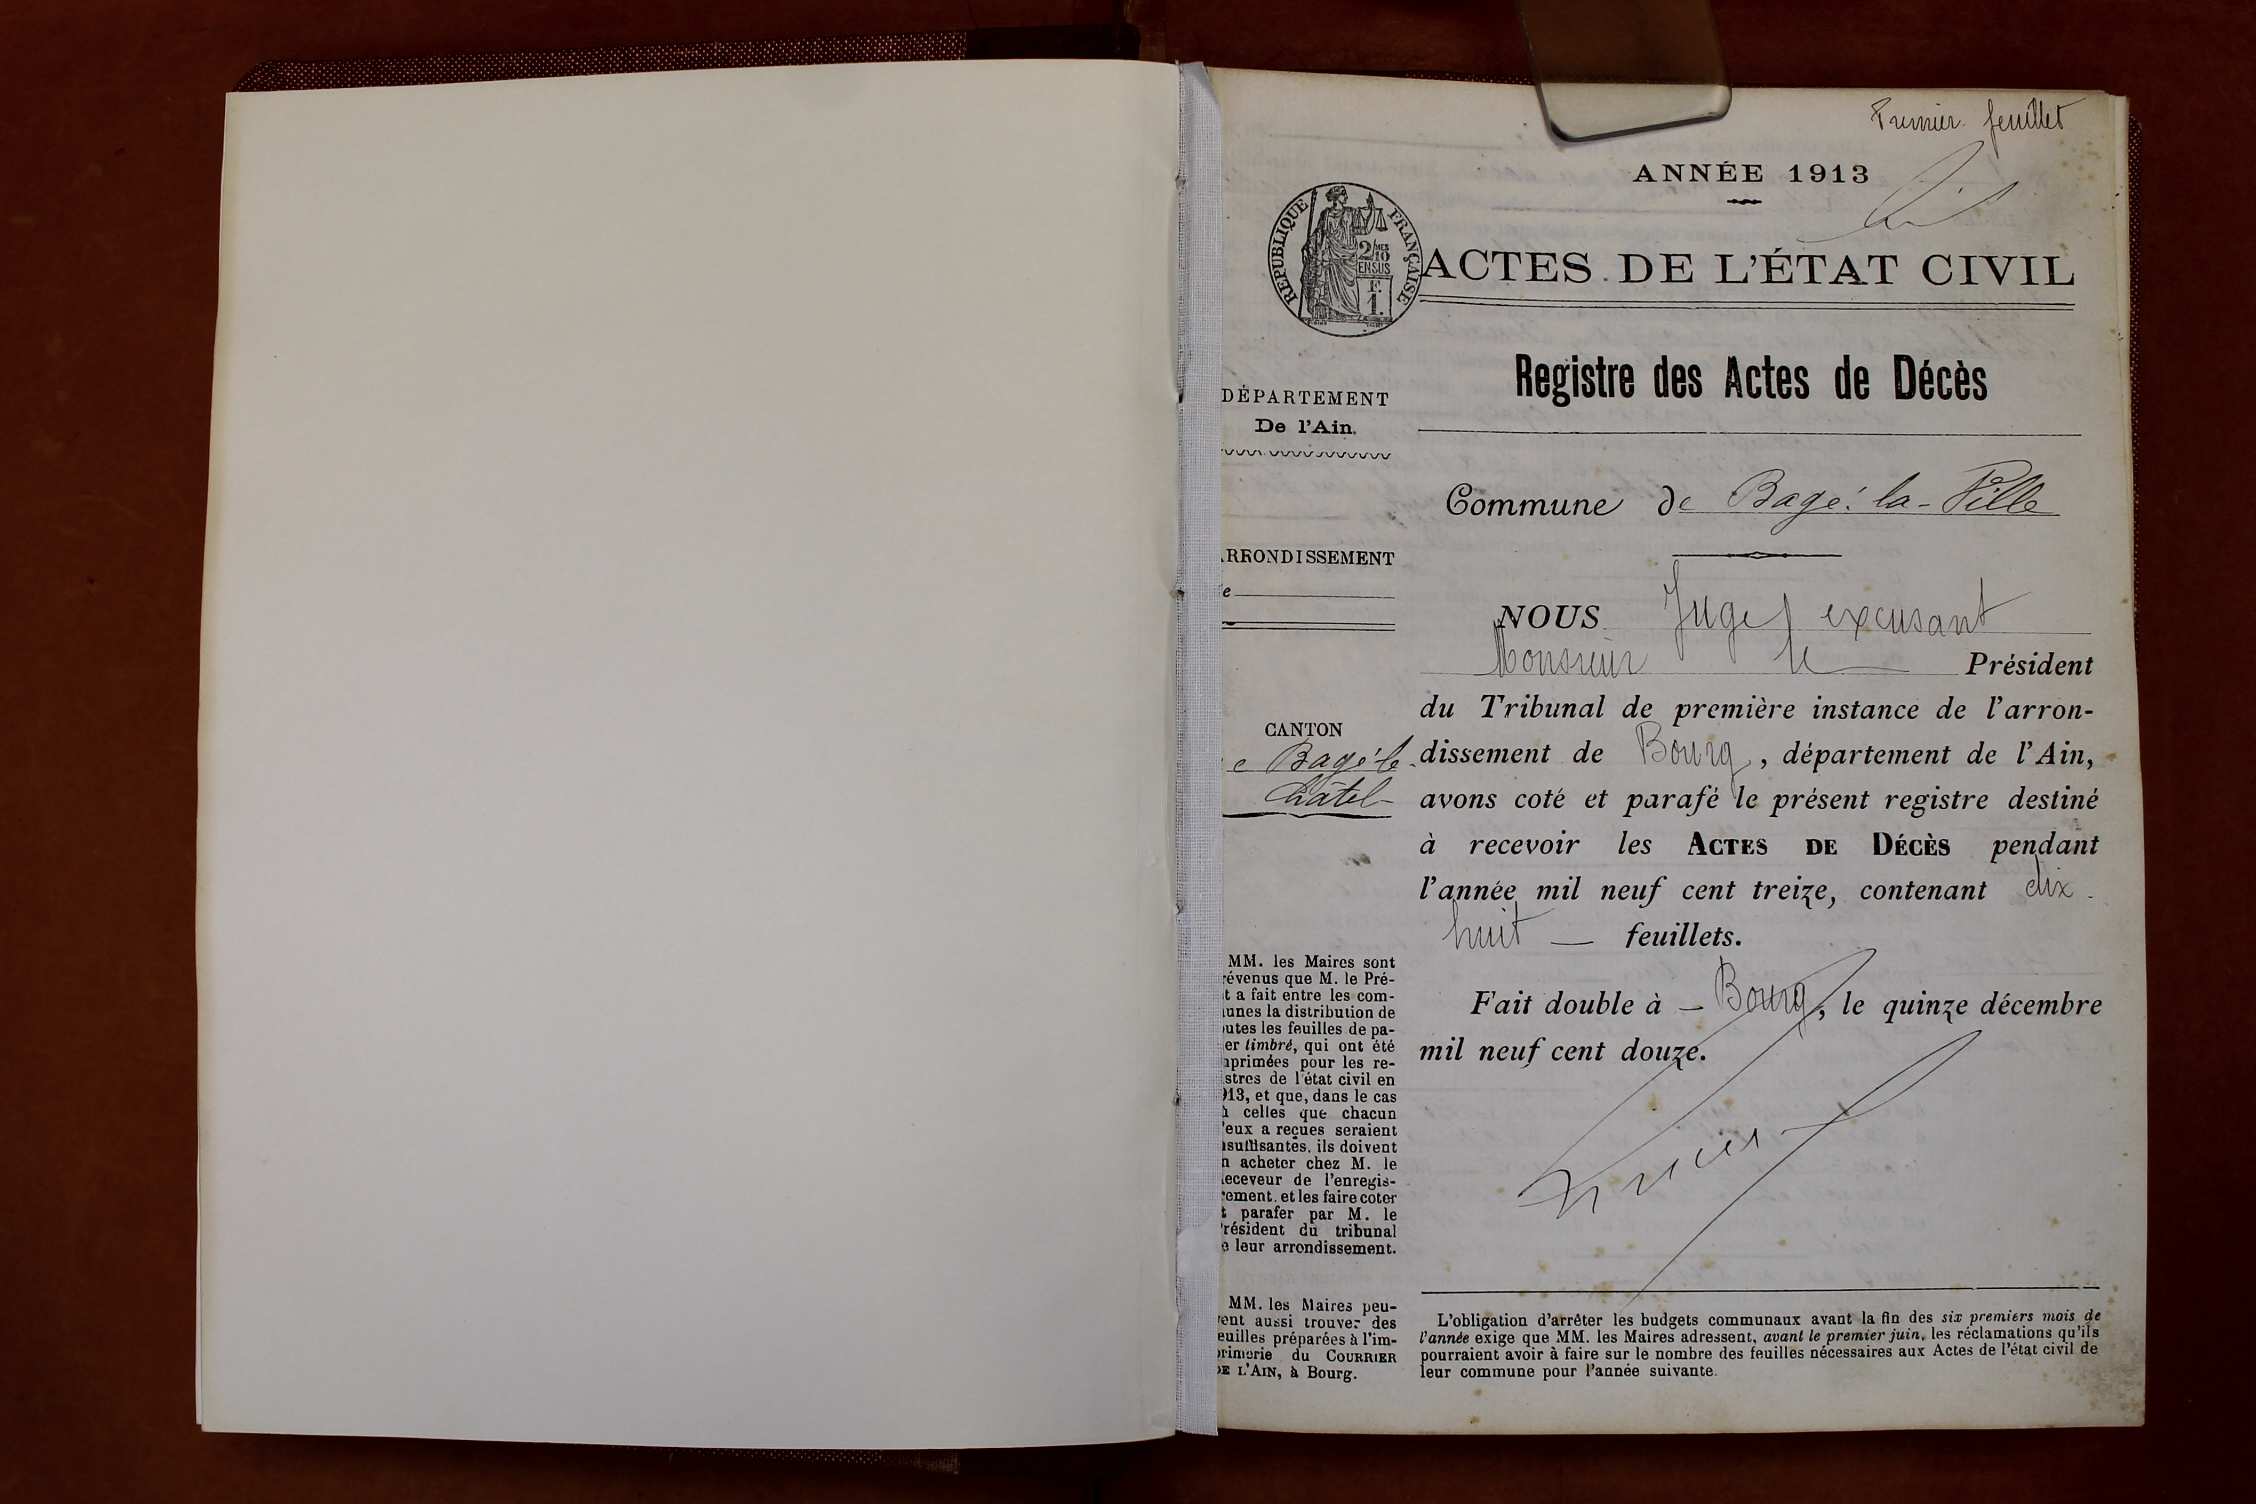 Premier feuillet
ANNÉE 1913
RÉPUBLIQUE FRANÇAISE
2/10 MES
EN SUS
F.
1.
ACTES DE L'ÉTAT CIVIL
Registre des Actes de Décès
DÉPARTEMENT
De l'Ain.
Commune de Bagé-la-Ville
RRONDISSEMENT
e
NOUS Juge excusant
Monsieur le Président
du Tribunal de première instance de l'arron-
dissement de Bourg, département de l'Ain,
avons coté et parafé le présent registre destiné
à recevoir les ACTES DE DÉCÈS pendant
l'année mil neuf cent treize, contenant dix
huit — feuillets.
Fait double à — Bourg, le quinze décembre
mil neuf cent douze.
CANTON
e Bagé-le
Châtel
MM. les Maires sont
révenus que M. le Pré-
t a fait entre les com-
unes la distribution de
outes les feuilles de pa-
er timbré, qui ont été
mprimées pour les re-
stres de l'état civil en
913, et que, dans le cas
ù celles que chacun
'eux a reçues seraient
nsuffisantes, ils doivent
n acheter chez M. le
eceveur de l'enregis-
rement, et les faire coter
t parafer par M. le
résident du tribunal
e leur arrondissement.
MM. les Maires peu-
vent aussi trouver des
euilles préparées à l'im-
primerie du COURRIER
DE L'AIN, à Bourg.
L'obligation d'arrêter les budgets communaux avant la fin des six premiers mois de
l'année exige que MM. les Maires adressent, avant le premier juin, les réclamations qu'ils
pourraient avoir à faire sur le nombre des feuilles nécessaires aux Actes de l'état civil de
leur commune pour l'année suivante.